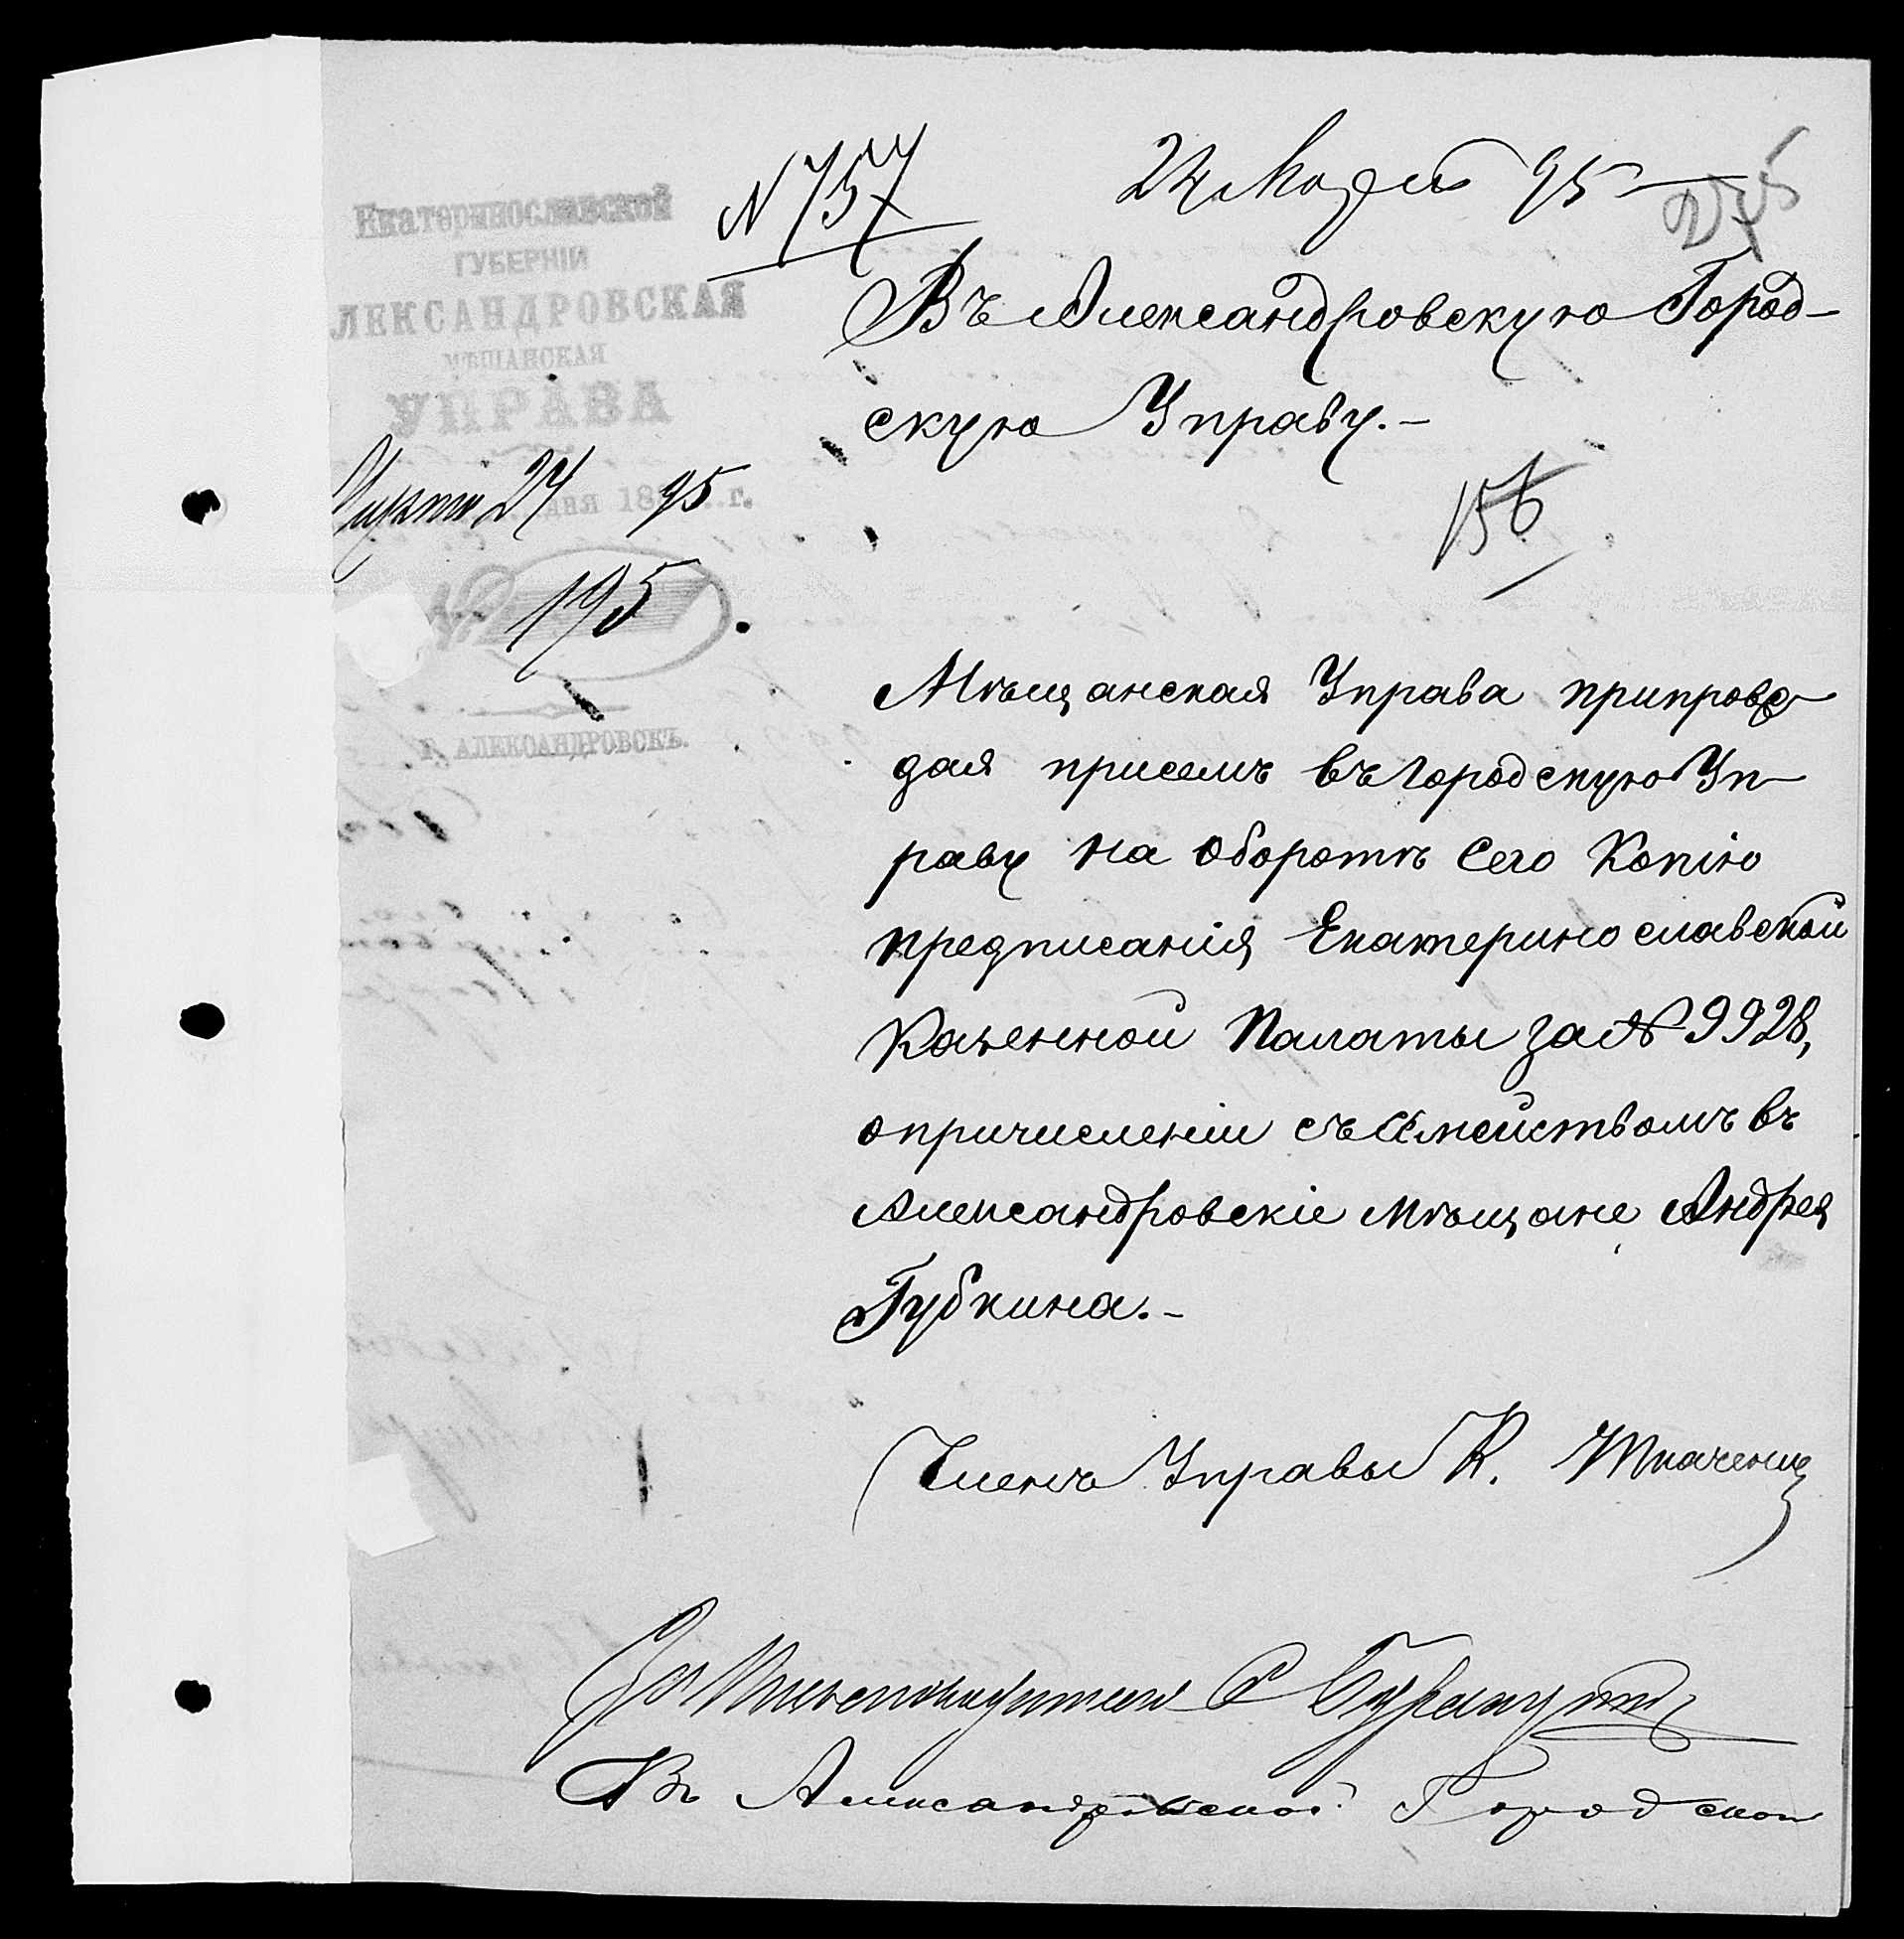 N 757
24 Марта 95
Екатеринославской
ГУБЕРНІИ
ЛЕКСАНДРОВСКАЯ
МѢЩАНСКАЯ
УПРАВА
Марта 24 дня 1895 г.
№ 195
Г. АЛЕКСАНДРОВСКЪ.
Въ Александровскую Город-
скую Управу.-
156
Мѣщанская Управа припровож
дая присемъ въ Городскую Уп
раву на оборотѣ сего Копію
предписанія Екатеринославской
Казенной Палаты за № 9928,
о причисленіи съ семействомъ въ
Александровскіе мѣщане Андрея
Губкина.-
Членъ Управы К. Ткаченко
За Письмоводителя
Въ Александровской Городской